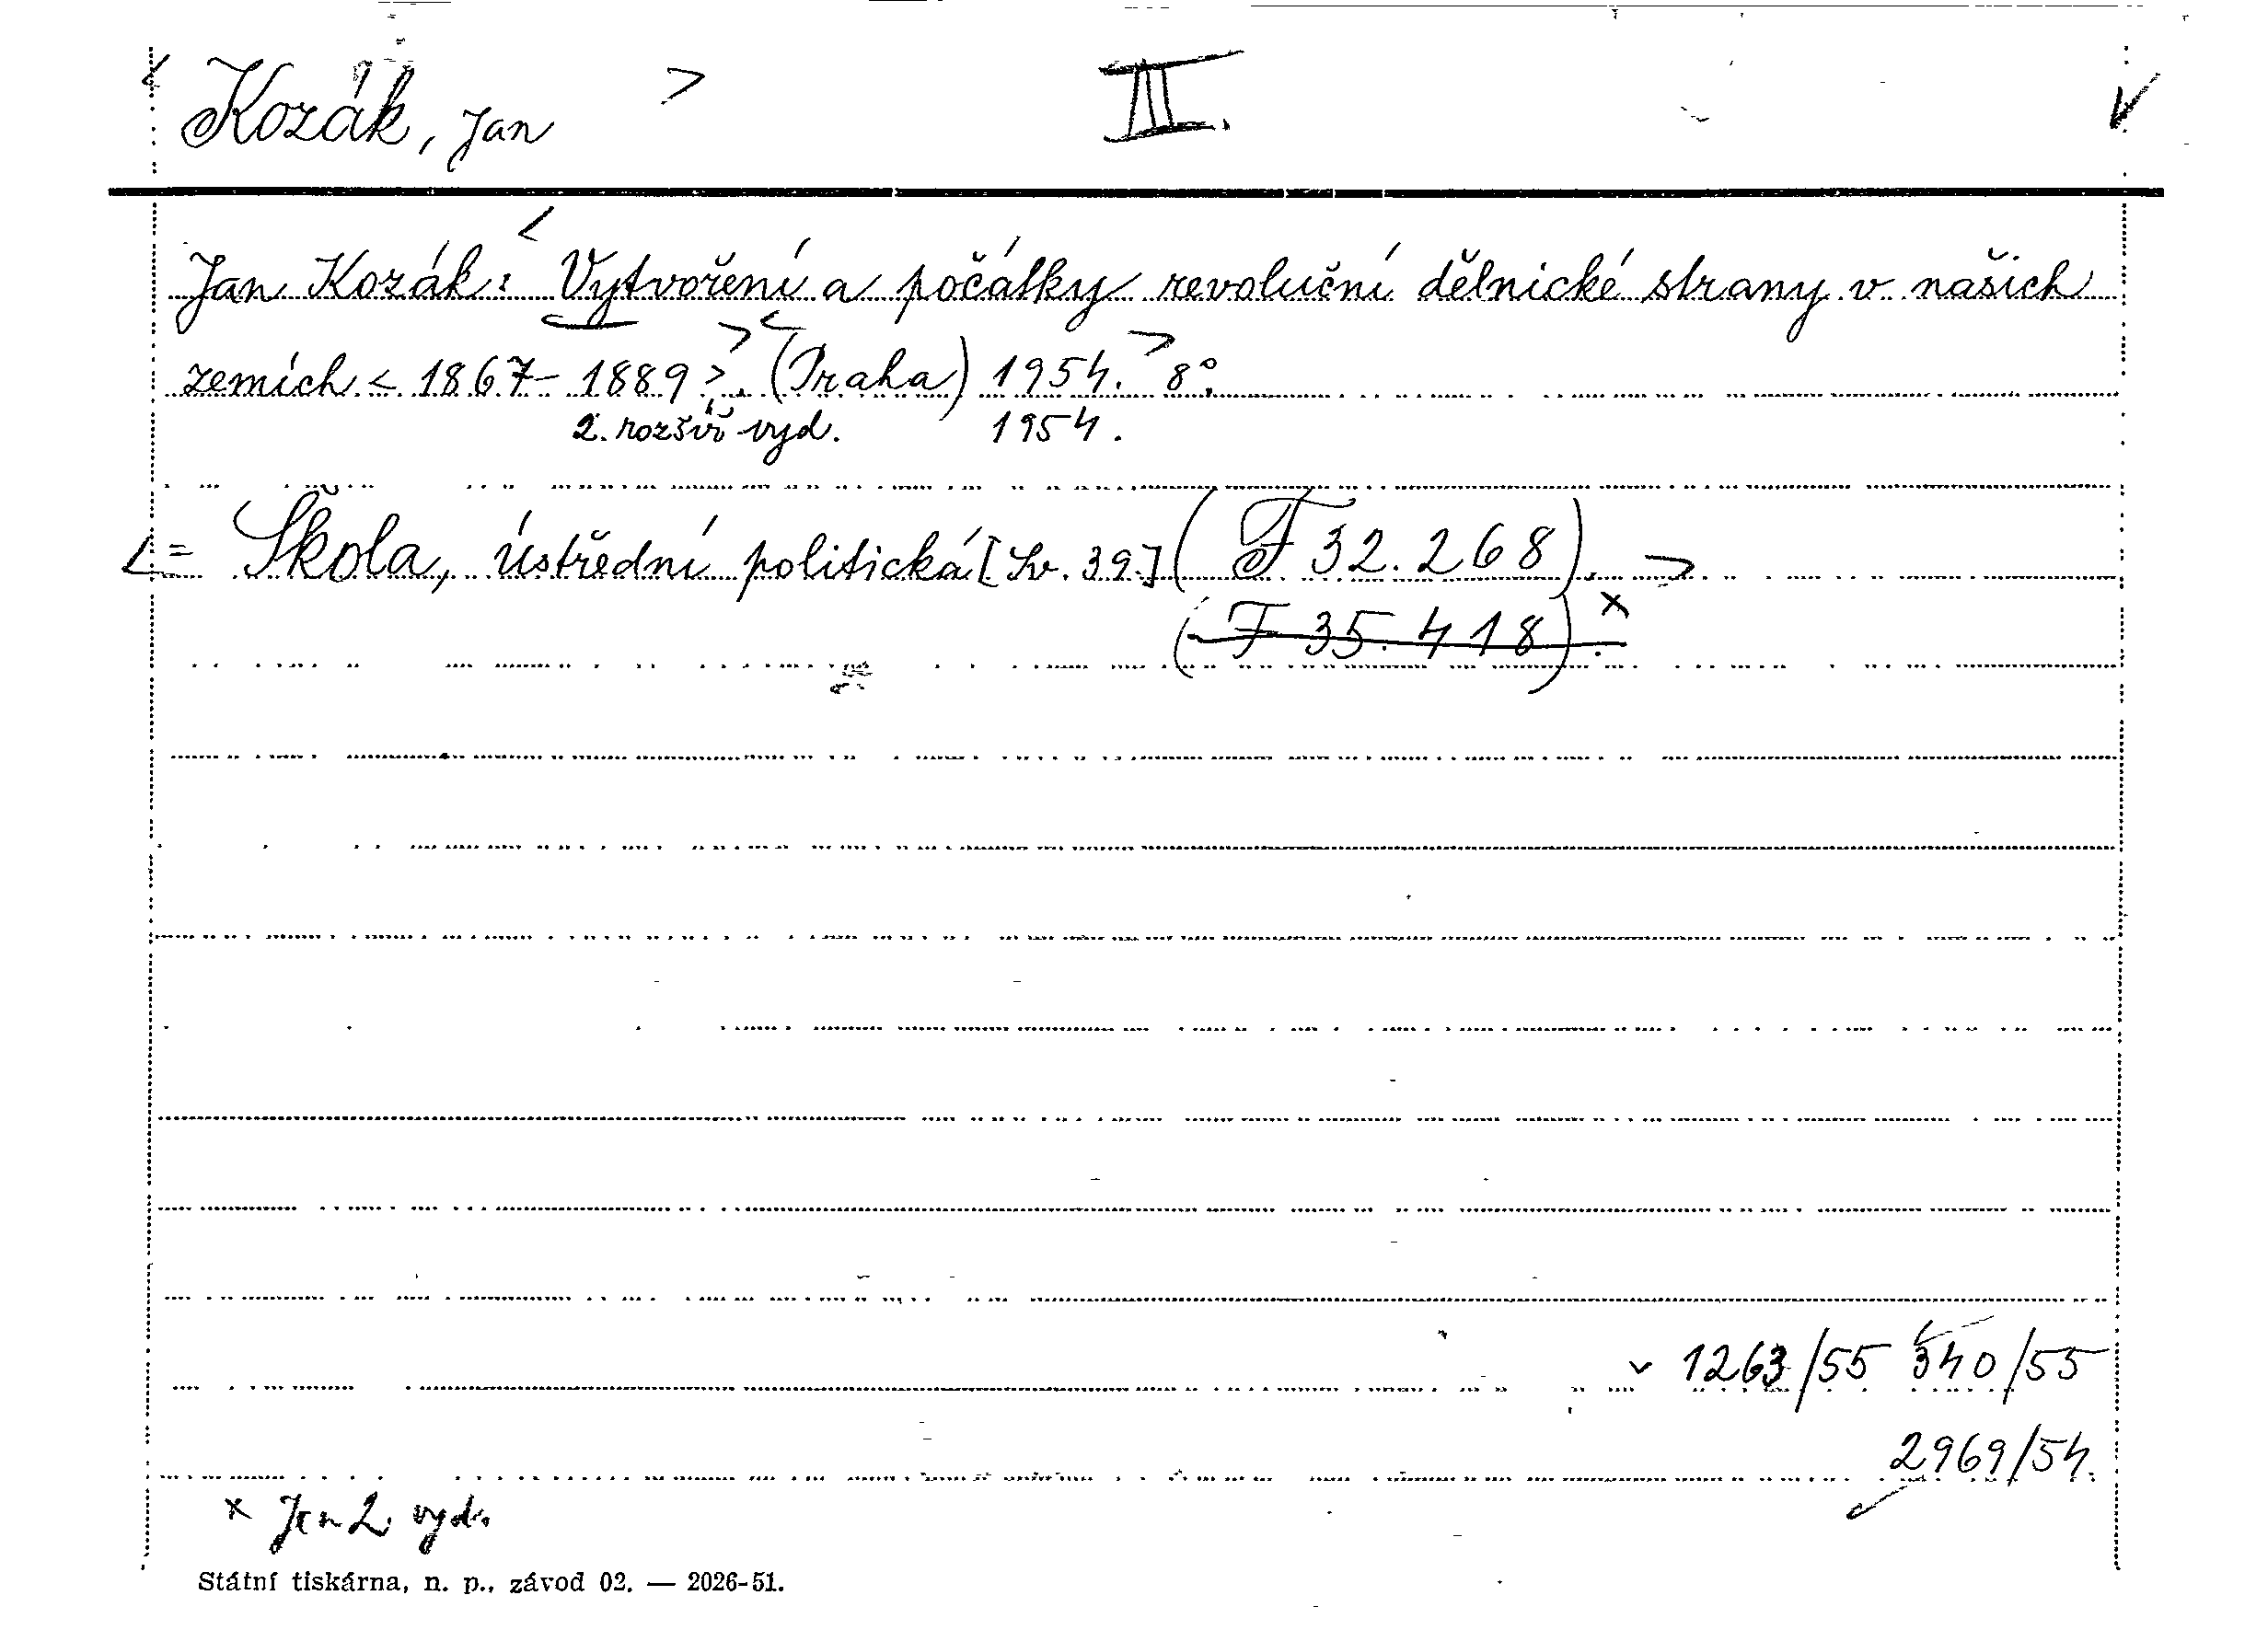 < Kozák, Jan > III.
Jan Kozák: < Vytvoření a počátky revoluční dělnické strany v našich
zemích < 1867 - 1889 >. > < (Praha) 1954. > 8°.
2. rozšíř vyd. 1954.
< = Škola, ústřední politická [Sv. 39.] (F 32.268). >
(F 35.418). x
1263/55 340/55
2969/54.
x Jen 2. vyd.
Státní tiskárna, n. p., závod 02. — 2026-51.